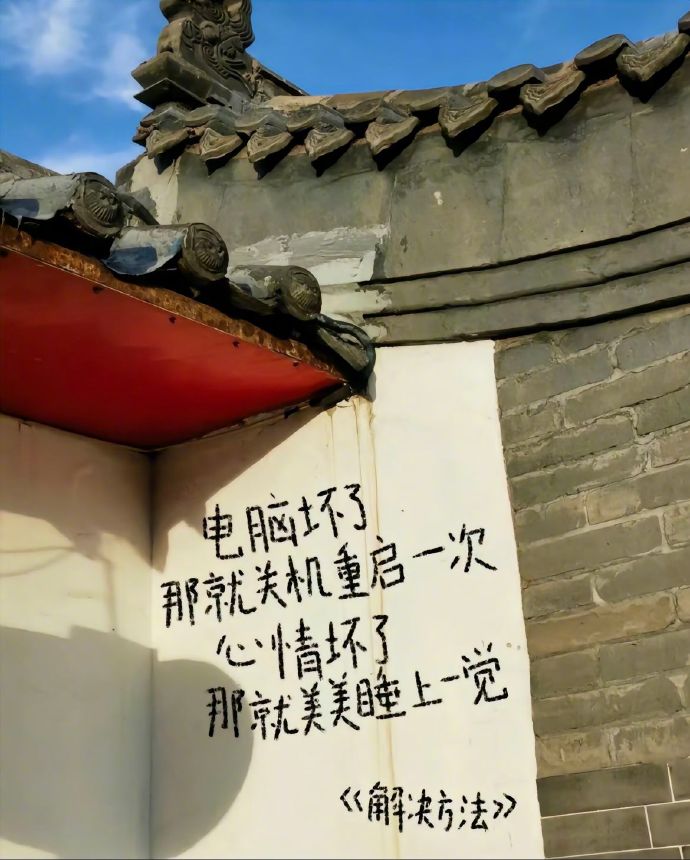 电脑坏了
那就关机重启一次
心情坏了
那就美美睡上一觉
《解决方法》